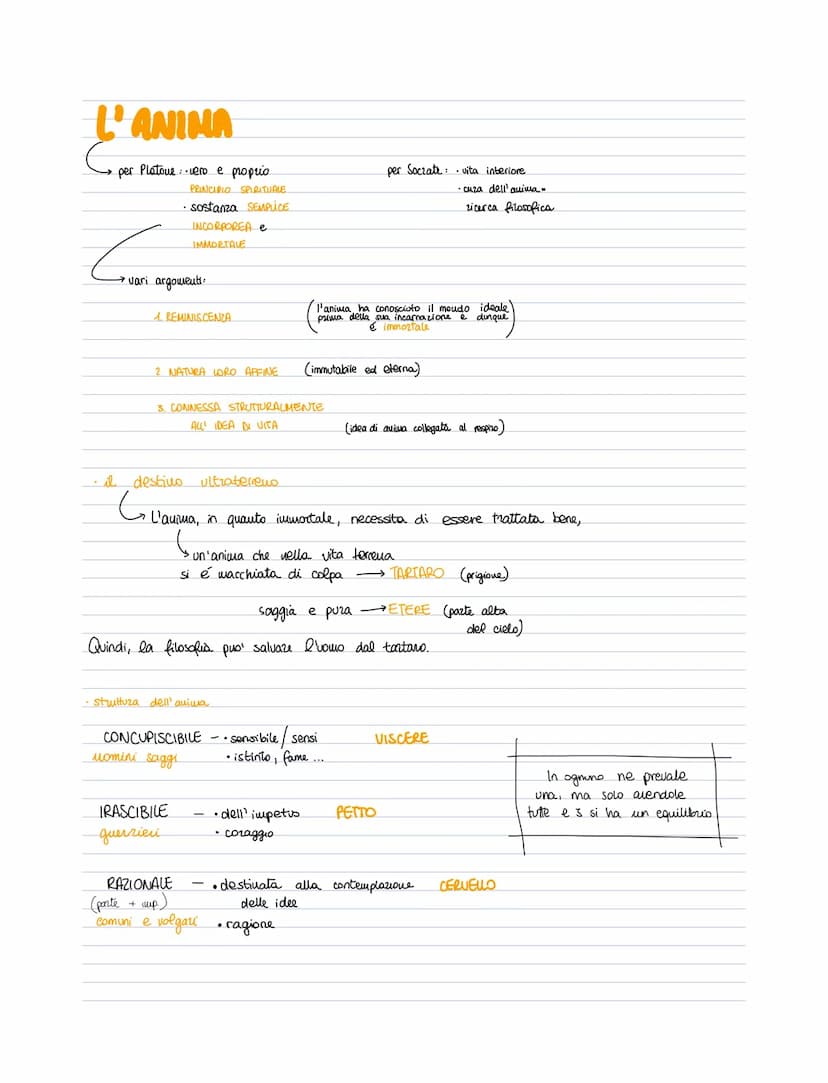 L'ANIMA
per Platone: • vero e proprio
PRINCIPIO SPIRITUALE
• sostanza SEMPLICE
INCORPOREA e
IMMORTALE
per Socrate: • vita interiore
• cura dell'anima =
ricerca filosofica
vari argomenti:
1. REMINISCENZA
(l'anima ha conosciuto il mondo ideale
prima della sua incarnazione e dunque
é immortale)
2. NATURA LORO AFFINE (immutabile ed eterna)
3. CONNESSA STRUTTURALMENTE
ALL' IDEA DI VITA (idea di anima collegata al respiro)
• il destino ultraterreno
L'anima, in quanto immortale, necessita di essere trattata bene,
un'anima che nella vita terrena
si é macchiata di colpa → TARTARO (prigione)
saggia e pura → ETERE (parte alta
del cielo)
Quindi, la filosofia puo' salvare l'uomo dal tartaro.
• struttura dell'anima
CONCUPISCIBILE - • sensibile / sensi VISCERE
uomini saggi • istinto, fame ...
IRASCIBILE - • dell'impetus PETTO
guerrieri • coraggio
RAZIONALE - • destinata alla contemplazione CERVELLO
(parte + imp.) delle idee
comuni e volgari • ragione
In ognuno ne prevale
una, ma solo avendole
tutte e 3 si ha un equilibrio